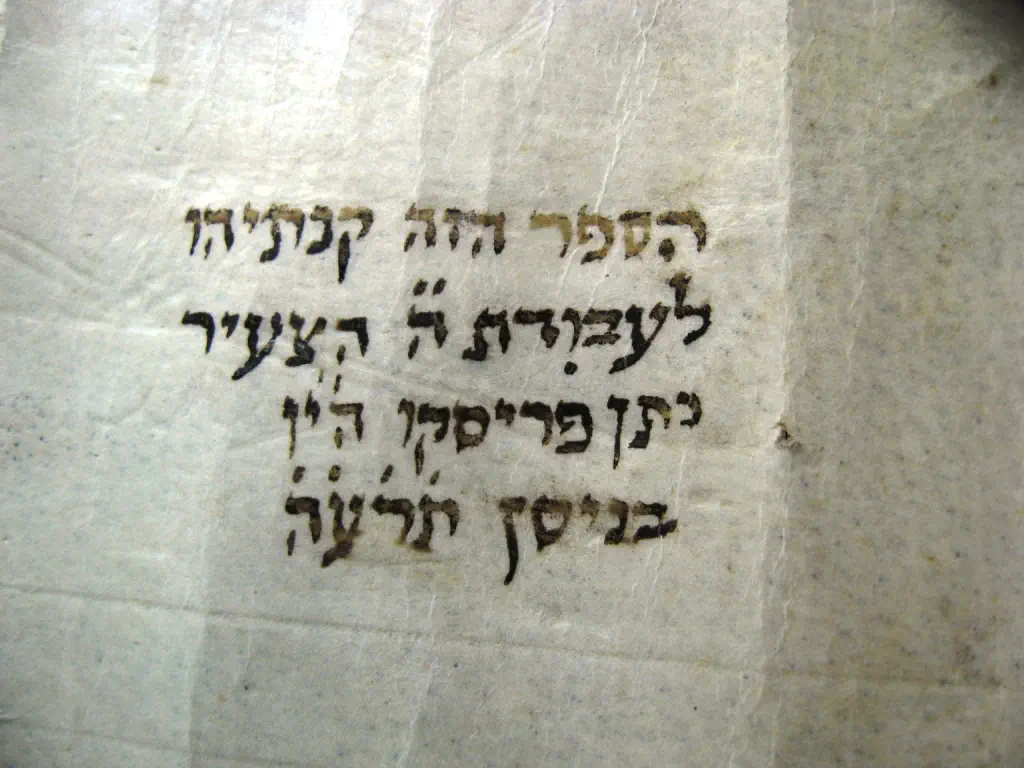 הספר הזה קנתיהו
לעבודת ה̈ הצעיר
נתן פריסקו ה'ין
בניסן ת̇ר̇ע̇ה̇